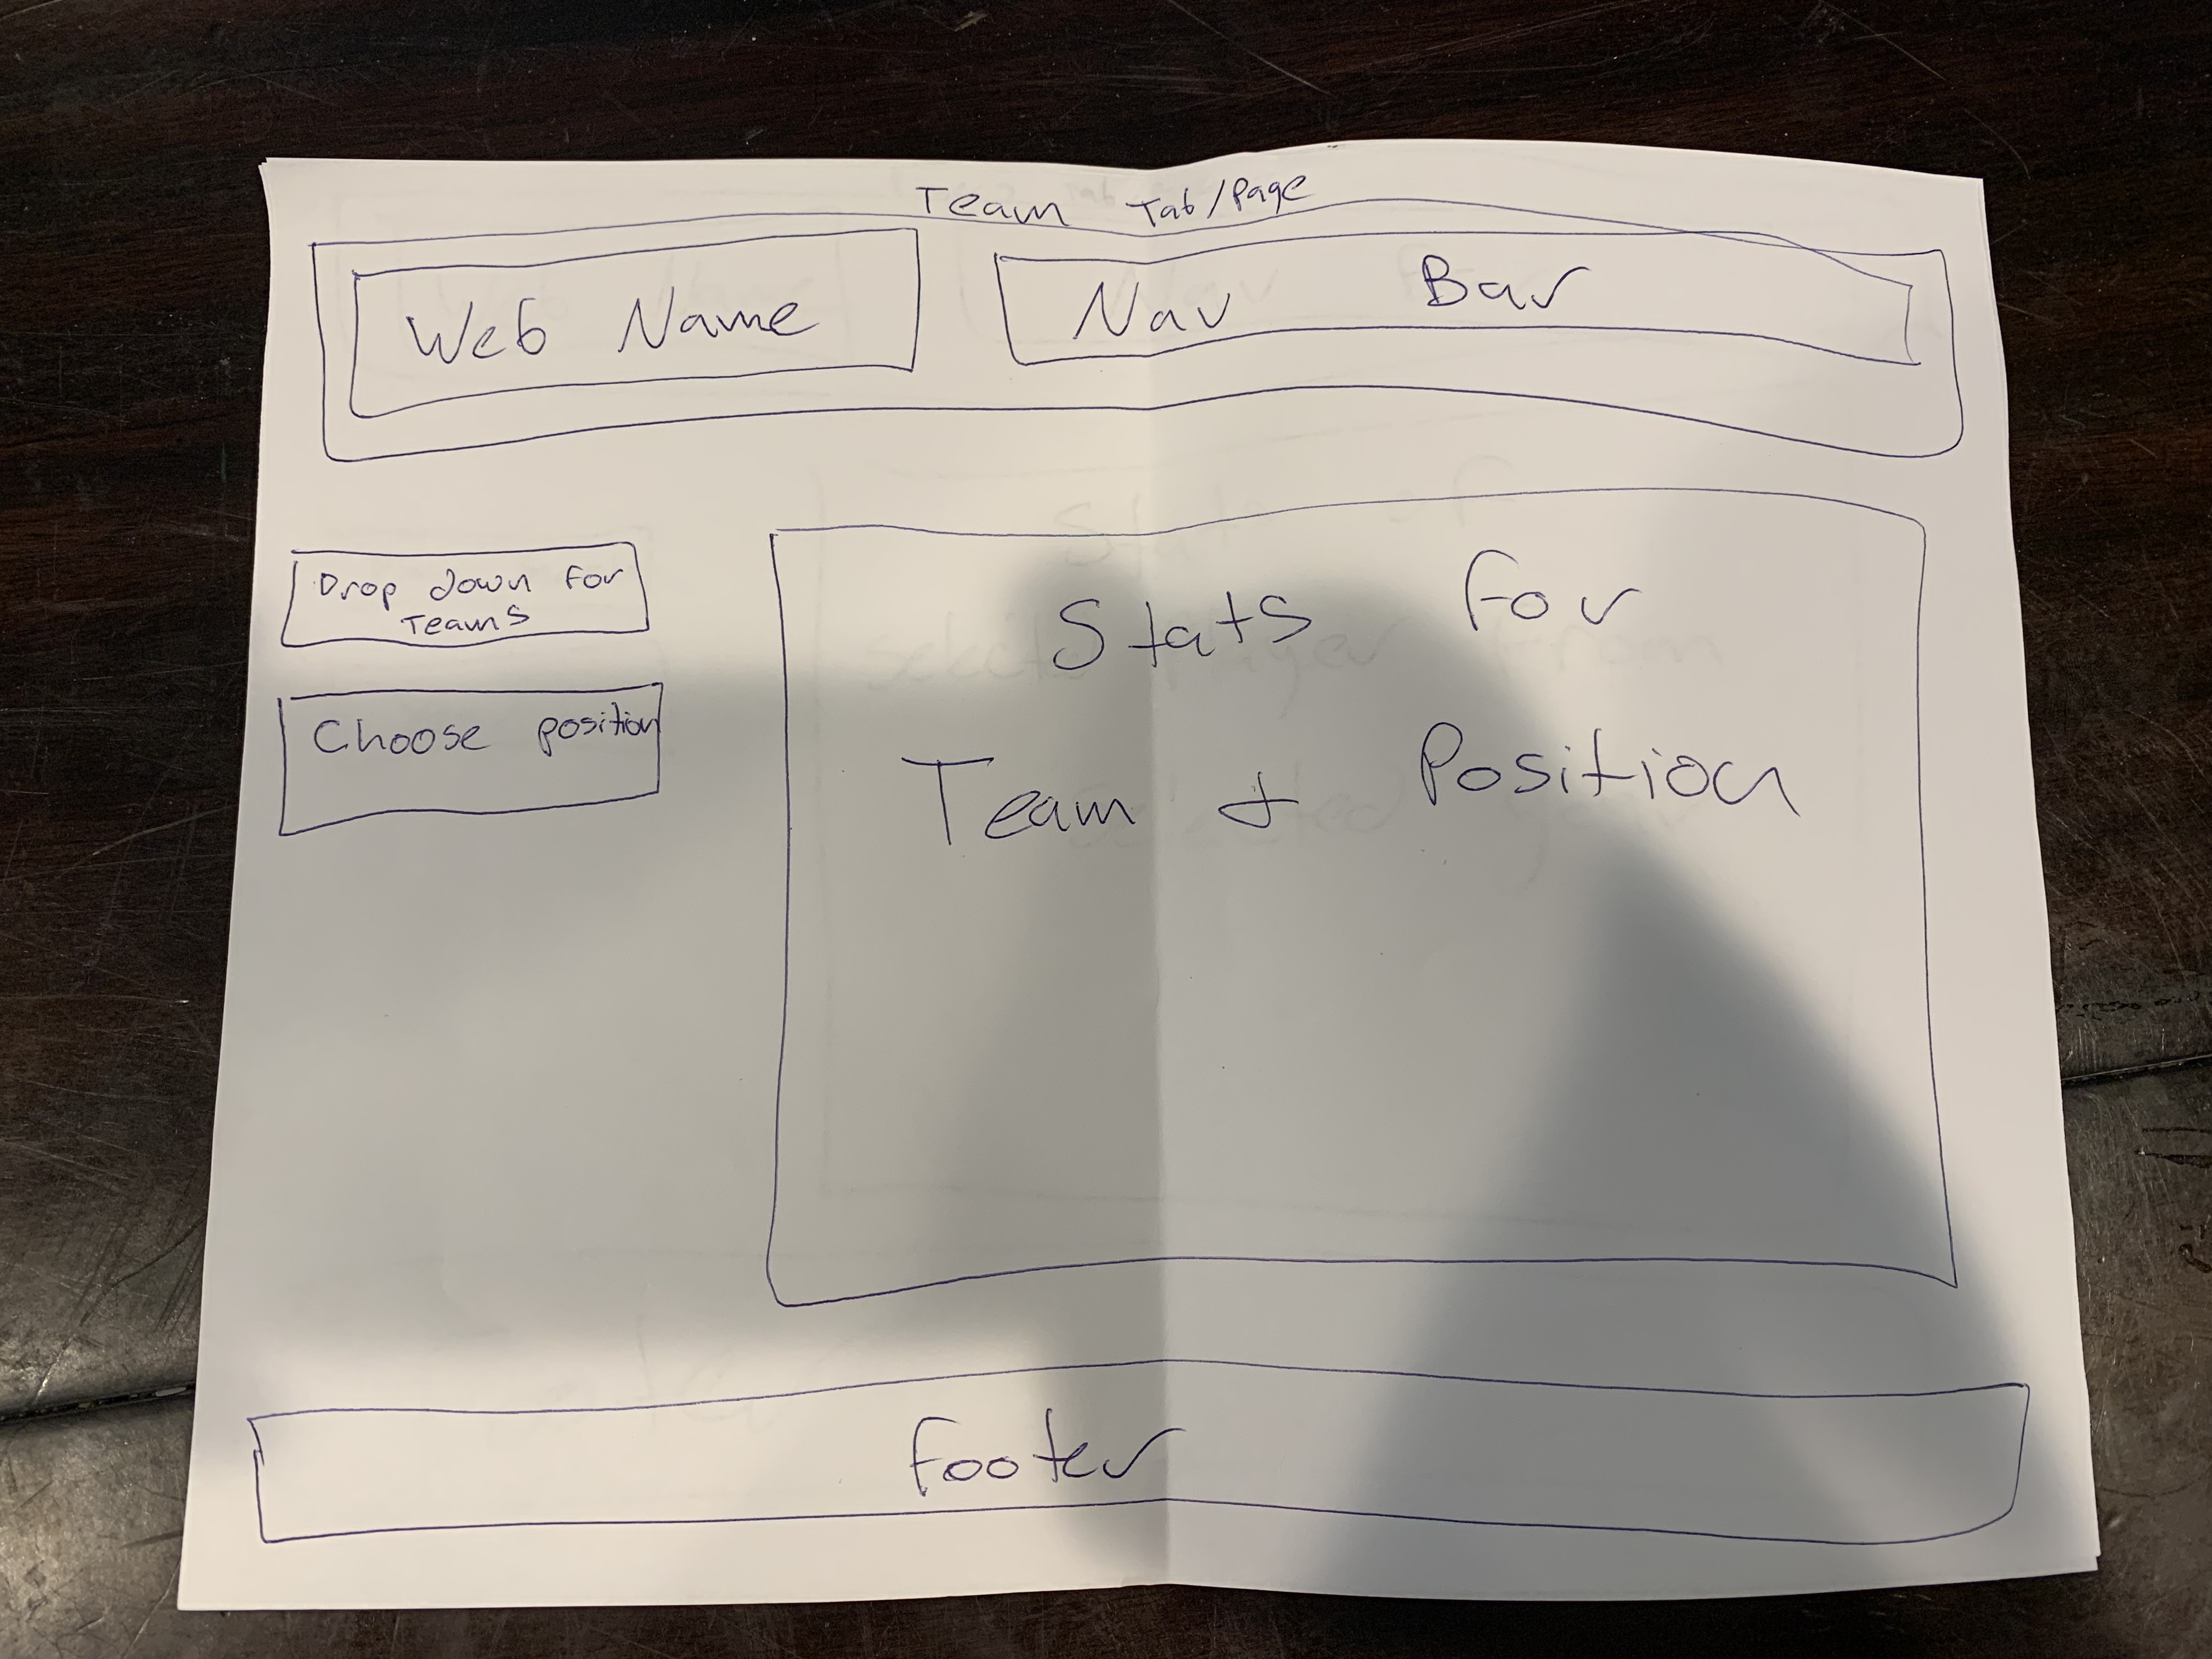 Team Tab/Page
Web Name
Nav Bar
Drop down for
Teams
Choose position
Stats for
Team & Position
footer